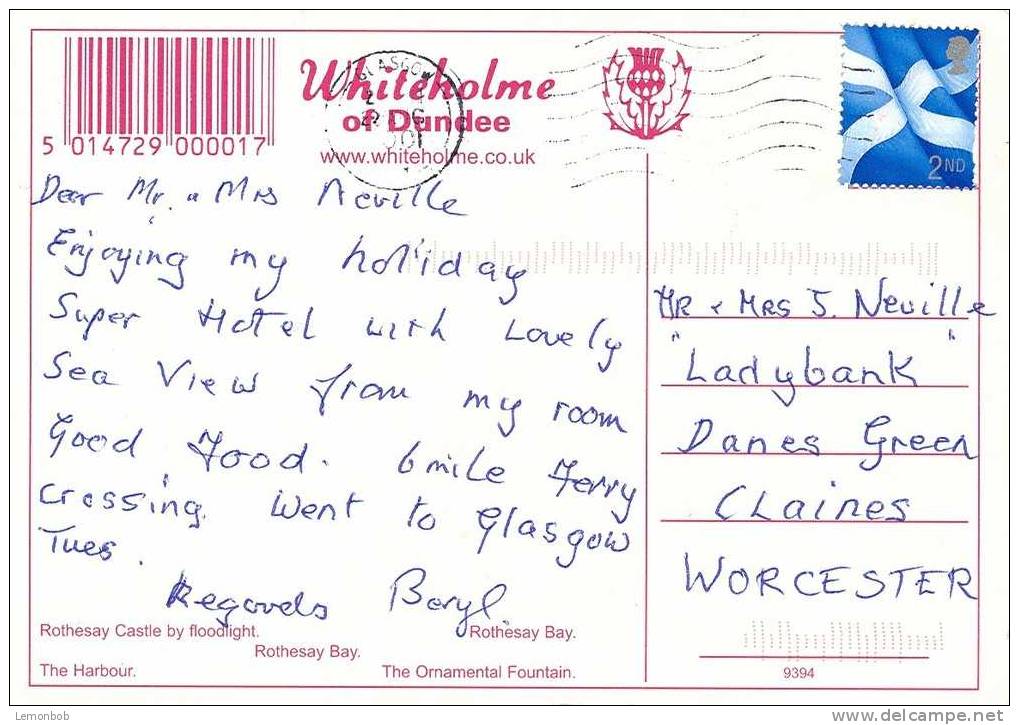 5 014729 000017
Whiteholme
of Dundee
www.whiteholme.co.uk
GLASGOW
2ND
Dear Mr. & Mrs Neville
Enjoying my holiday
Super Hotel with Lovely
Sea View from my room
Good Food. 6 mile Ferry
Crossing. Went to Glasgow
Tues.
Regards Beryl.
MR & MRS J. Neville
"Ladybank"
Danes Green
CLaines
WORCESTER
Rothesay Castle by floodlight.
Rothesay Bay.
Rothesay Bay.
The Harbour.
The Ornamental Fountain.
9394
Lemonbob
www.delcampe.net